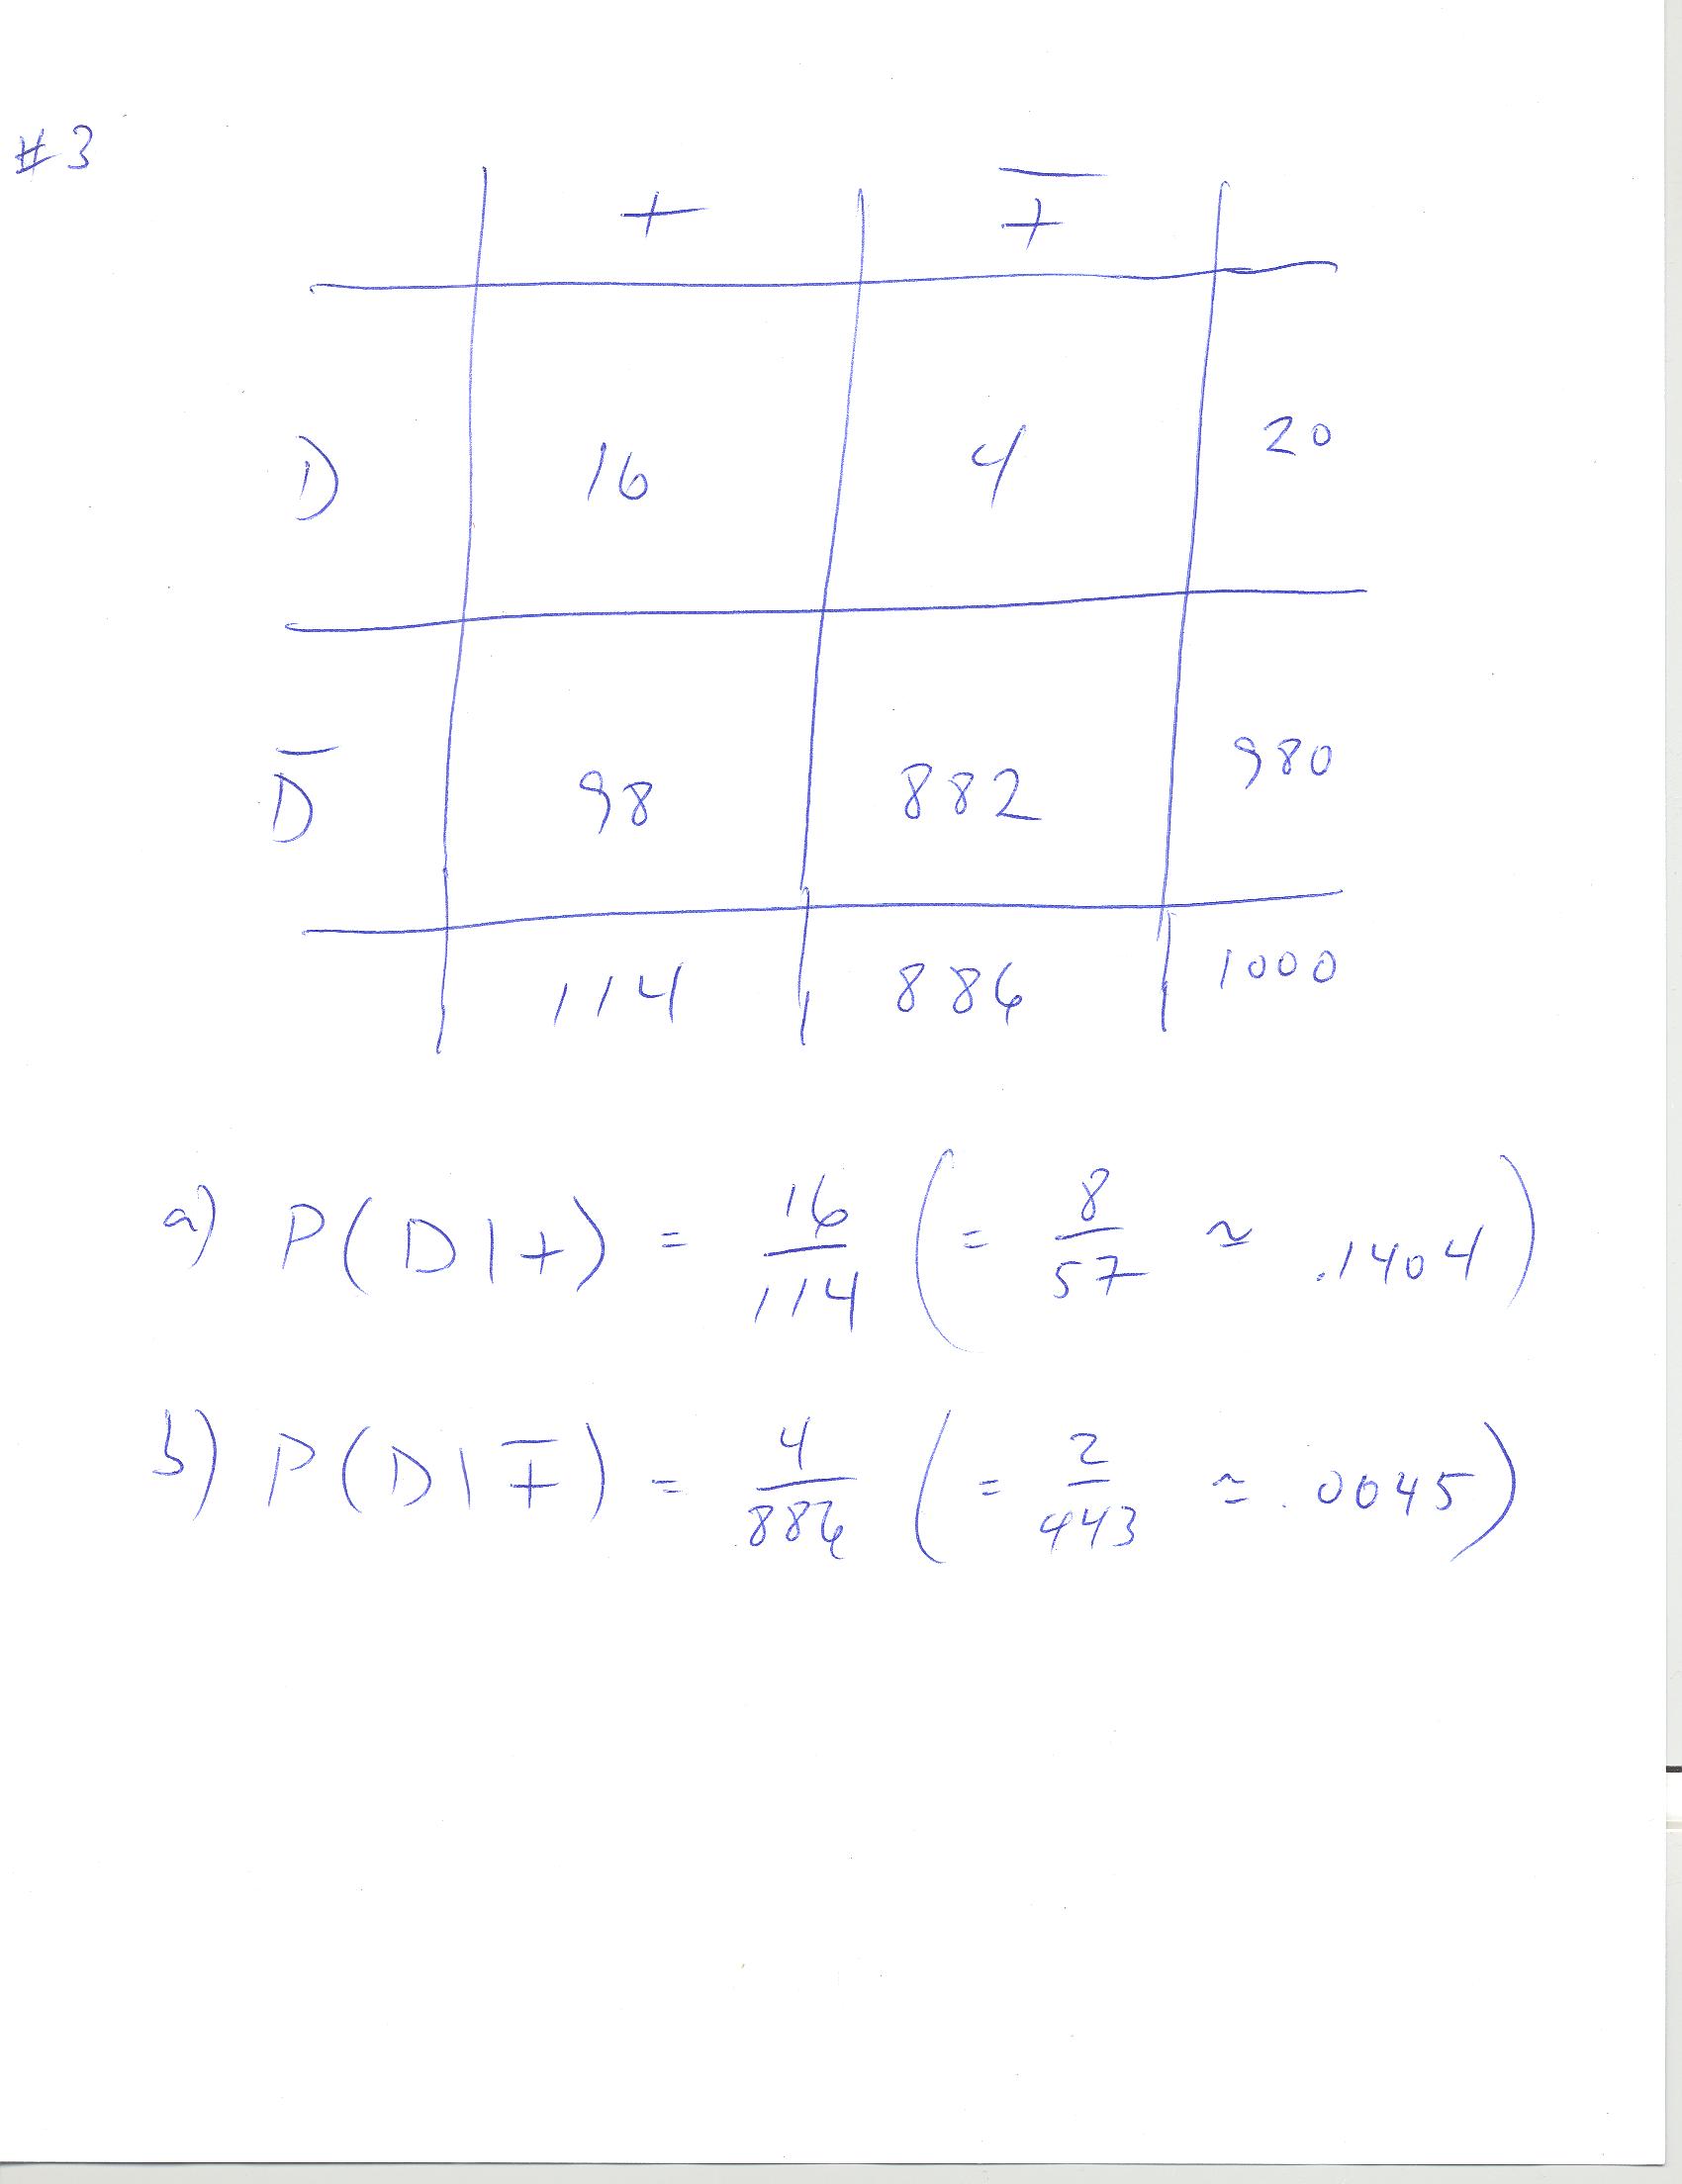 #3
+ +̅
D 16 4 20
D̅ 98 882 980
114 886 1000
a) P(D|+) = 16/114 (= 8/57 ≈ .1404)
b) P(D|+̅) = 4/886 (= 2/443 ≈ .0045)